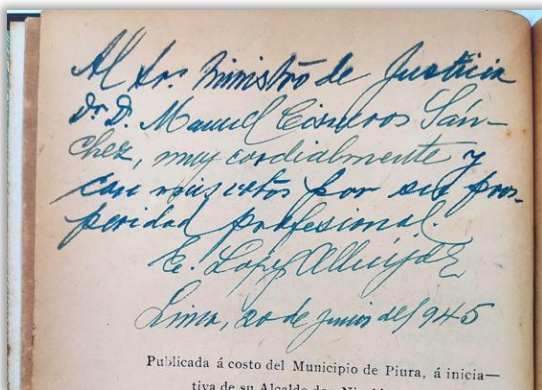 Al Sr. Ministro de Justicia
Dr. D. Manuel Cisneros Sán-
chez, muy cordialmente y
con mis votos por su pros-
peridad profesional.
E. Lopez Albújar
Lima, 20 de junio del 945
Publicada á costo del Municipio de Piura, á inicia—
tiva de su Alcalde don